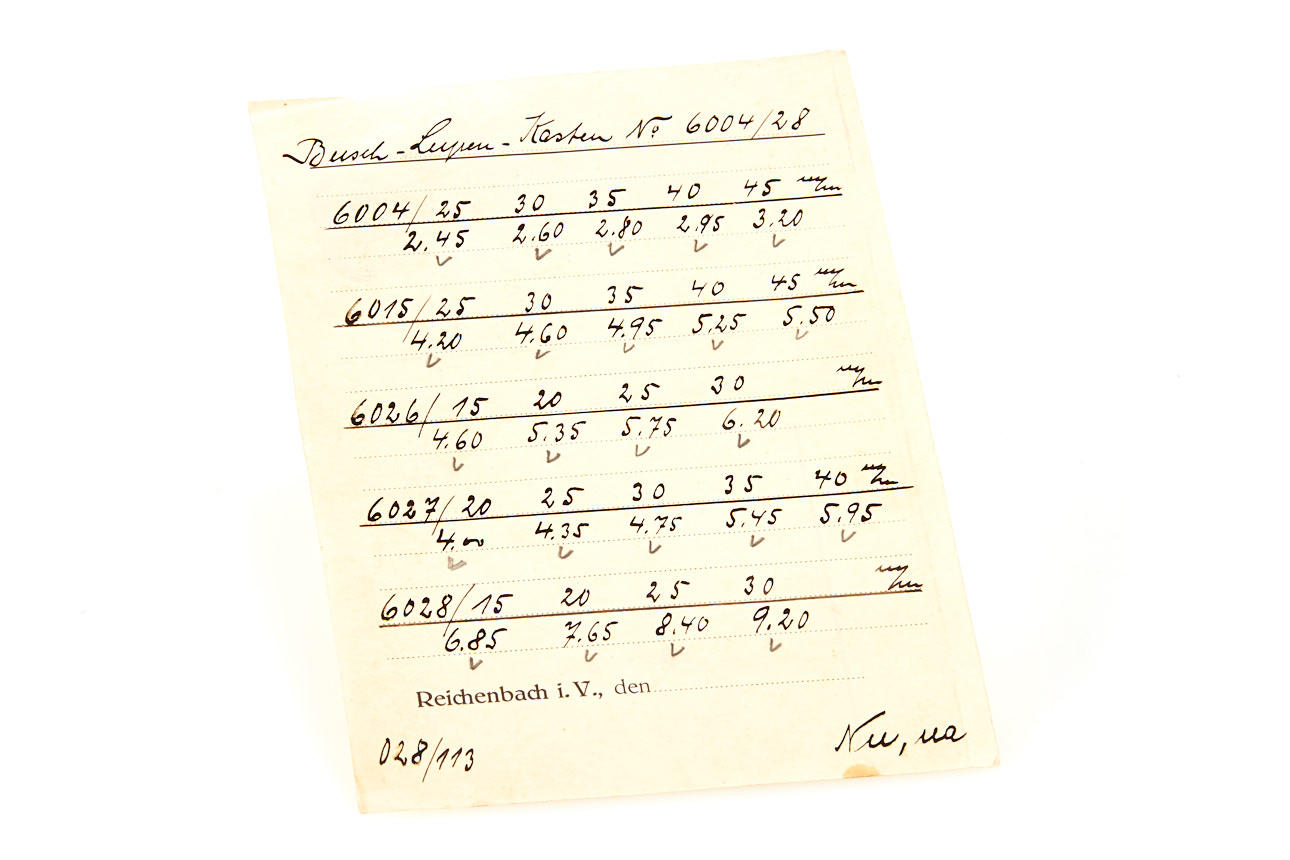 Busch-Lupen-Kasten No 6004/28
6004/ 25 30 35 40 45 m/m
2.45 2.60 2.80 2.95 3.20
6015/ 25 30 35 40 45 m/m
4.20 4.60 4.95 5.25 5.50
6026/ 15 20 25 30 m/m
4.60 5.35 5.75 6.20
6027/ 20 25 30 35 40 m/m
4.00 4.35 4.75 5.45 5.95
6028/ 15 20 25 30 m/m
6.85 7.65 8.40 9.20
Reichenbach i. V., den
028/113